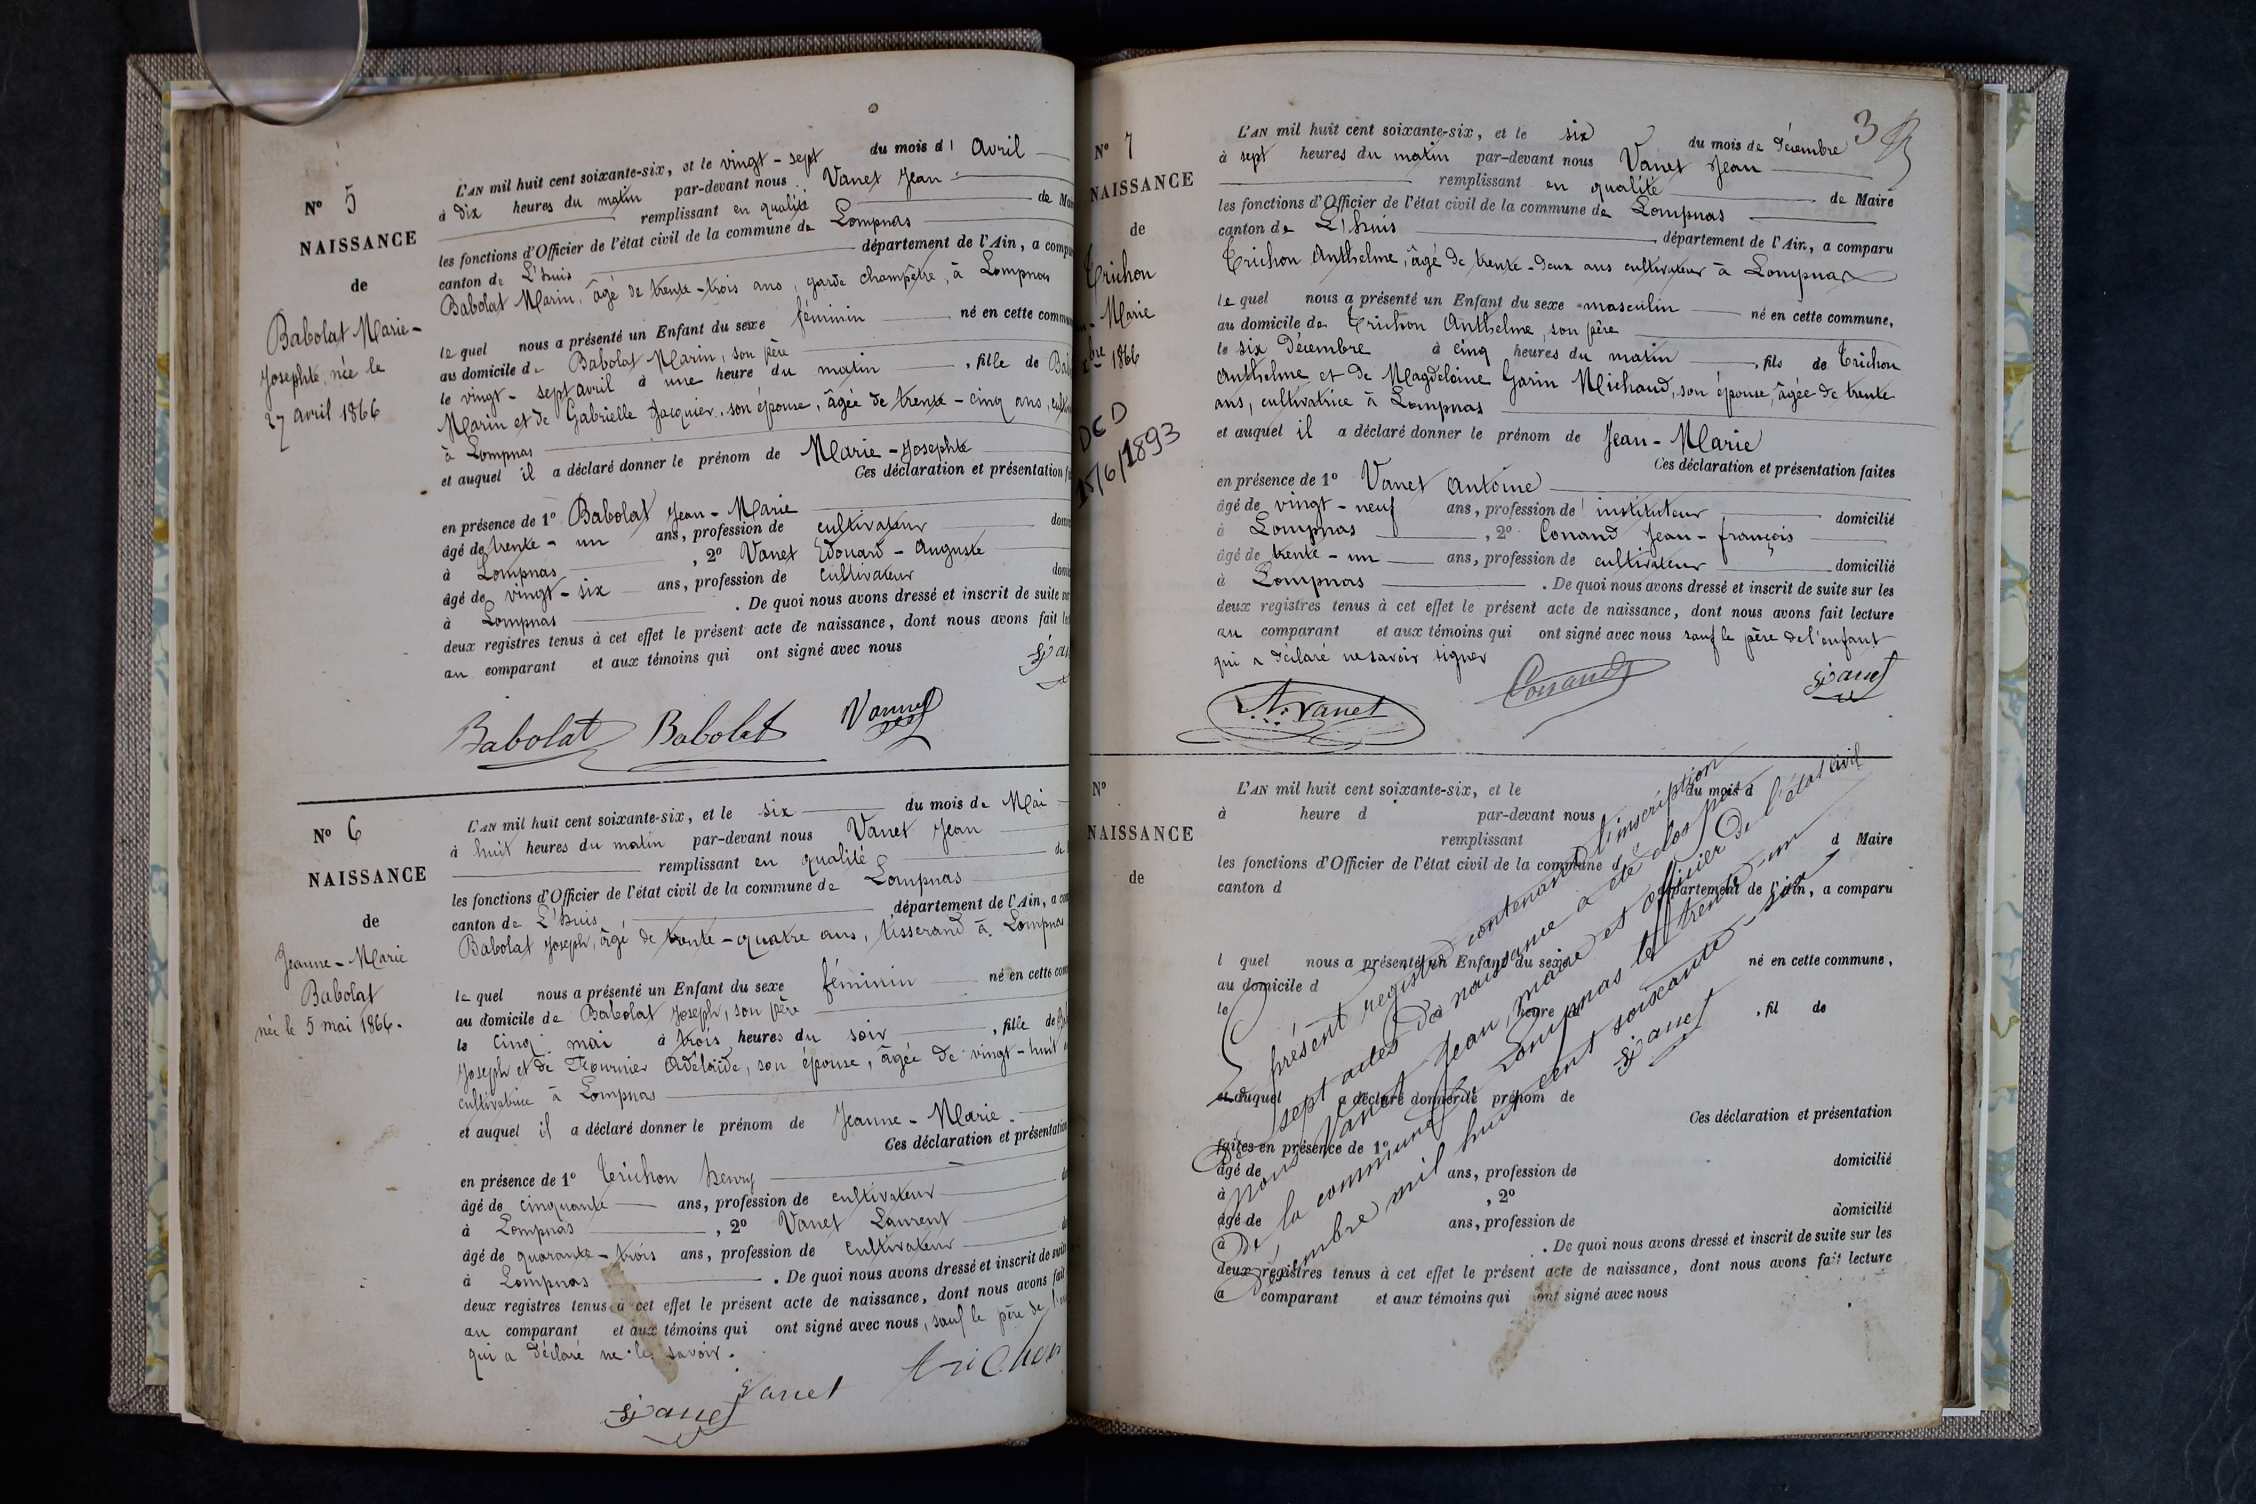 N° 5
NAISSANCE
de
Babolat Marie-
Josephte, née le
27 avril 1866
L'AN mil huit cent soixante-six, et le vingt-sept du mois d'avril
à dix heures du matin par-devant nous Vanet Jean
remplissant en qualité de
les fonctions d'Officier de l'état civil de la commune de Lompnas
canton de L'huis département de l'Ain, a
Babolat Marin, âgé de trente-trois ans, garde champêtre, à Lompnas
le quel nous a présenté un Enfant du sexe féminin né en cette
au domicile de Babolat Marin, son père
le vingt-sept avril à une heure du matin, fille de
Marin et de Gabrielle Jacquier, son épouse, âgée de trente-cinq ans,
à Lompnas
et auquel il a déclaré donner le prénom de Marie-Josephte
Ces déclaration et présentation
en présence de 1° Babolat Jean-Marie
âgé de trente-un ans, profession de cultivateur
à Lompnas, 2° Vanet Edouard-Auguste
âgé de vingt-six ans, profession de cultivateur
à Lompnas. De quoi nous avons dressé et inscrit de suite
deux registres tenus à cet effet le présent acte de naissance, dont nous avons fait
au comparant et aux témoins qui ont signé avec nous
Babolat Babolat Vannet
N° 6
NAISSANCE
de
Jeanne-Marie
Babolat
née le 5 mai 1866.
L'AN mil huit cent soixante-six, et le six du mois de Mai
à huit heures du matin par-devant nous Vanet Jean
remplissant en qualité
les fonctions d'Officier de l'état civil de la commune de Lompnas
canton de L'huis département de l'Ain, a
Babolat Joseph, âgé de trente-quatre ans, tisserand à Lompnas
le quel nous a présenté un Enfant du sexe féminin né en cette
au domicile de Babolat Joseph, son père
le cinq mai à trois heures du soir, fille de
Joseph et de Fournier Adélaïde, son épouse, âgée de vingt-huit
cultivatrice à Lompnas
et auquel il a déclaré donner le prénom de Jeanne-Marie.
Ces déclaration et présentation
en présence de 1° Trichon henry
âgé de cinquante ans, profession de cultivateur
à Lompnas, 2° Vanet Laurent
âgé de quarante-trois ans, profession de cultivateur
à Lompnas. De quoi nous avons dressé et inscrit de suite
deux registres tenus à cet effet le présent acte de naissance, dont nous avons fait
au comparant et aux témoins qui ont signé avec nous, sauf le père de
qui a déclaré ne le savoir.
Vanet
3
N° 7
NAISSANCE
de
Trichon
Marie
bre 1866
DCD
15/6/1893
L'AN mil huit cent soixante-six, et le six du mois de décembre
à sept heures du matin par-devant nous Vanet Jean
remplissant en qualité de Maire
les fonctions d'Officier de l'état civil de la commune de Lompnas
canton de L'huis département de l'Ain, a comparu
Trichon Anthelme, âgé de trente-deux ans cultivateur à Lompnas
le quel nous a présenté un Enfant du sexe masculin né en cette commune,
au domicile de Trichon Anthelme, son père
le six Décembre à cinq heures du matin, fils de Trichon
Anthelme et de Magdeloine Garin Michaud, son épouse, âgée de trente
ans, cultivatrice à Lompnas
et auquel il a déclaré donner le prénom de Jean-Marie
Ces déclaration et présentation faites
en présence de 1° Vanet Antoine
âgé de vingt-neuf ans, profession de instituteur domicilié
à Lompnas, 2° Conand Jean-françois
âgé de trente-un ans, profession de cultivateur domicilié
à Lompnas. De quoi nous avons dressé et inscrit de suite sur les
deux registres tenus à cet effet le présent acte de naissance, dont nous avons fait lecture
au comparant et aux témoins qui ont signé avec nous sauf le père de l'enfant
qui a déclaré ne savoir signer
A. Vanet Conand
N°
NAISSANCE
de
L'AN mil huit cent soixante-six, et le du mois d
à heure d par-devant nous
remplissant d Maire
les fonctions d'Officier de l'état civil de la commune d
canton d département de l'Ain, a comparu
l quel nous a présenté un Enfant du sexe né en cette commune,
au domicile d
le à heure d, fil de
et auquel a déclaré donner le prénom de
Ces déclaration et présentation
faites en présence de 1°
âgé de ans, profession de domicilié
à, 2°
âgé de ans, profession de domicilié
à. De quoi nous avons dressé et inscrit de suite sur les
deux registres tenus à cet effet le présent acte de naissance, dont nous avons fait lecture
a comparant et aux témoins qui ont signé avec nous
Le présent registre contenant l'inscription
de sept actes de naissance a été clos par
nous Vanet Jean, maire et officier de l'état civil
de la commune de Lompnas le trente-un
Décembre mil huit cent soixante-six